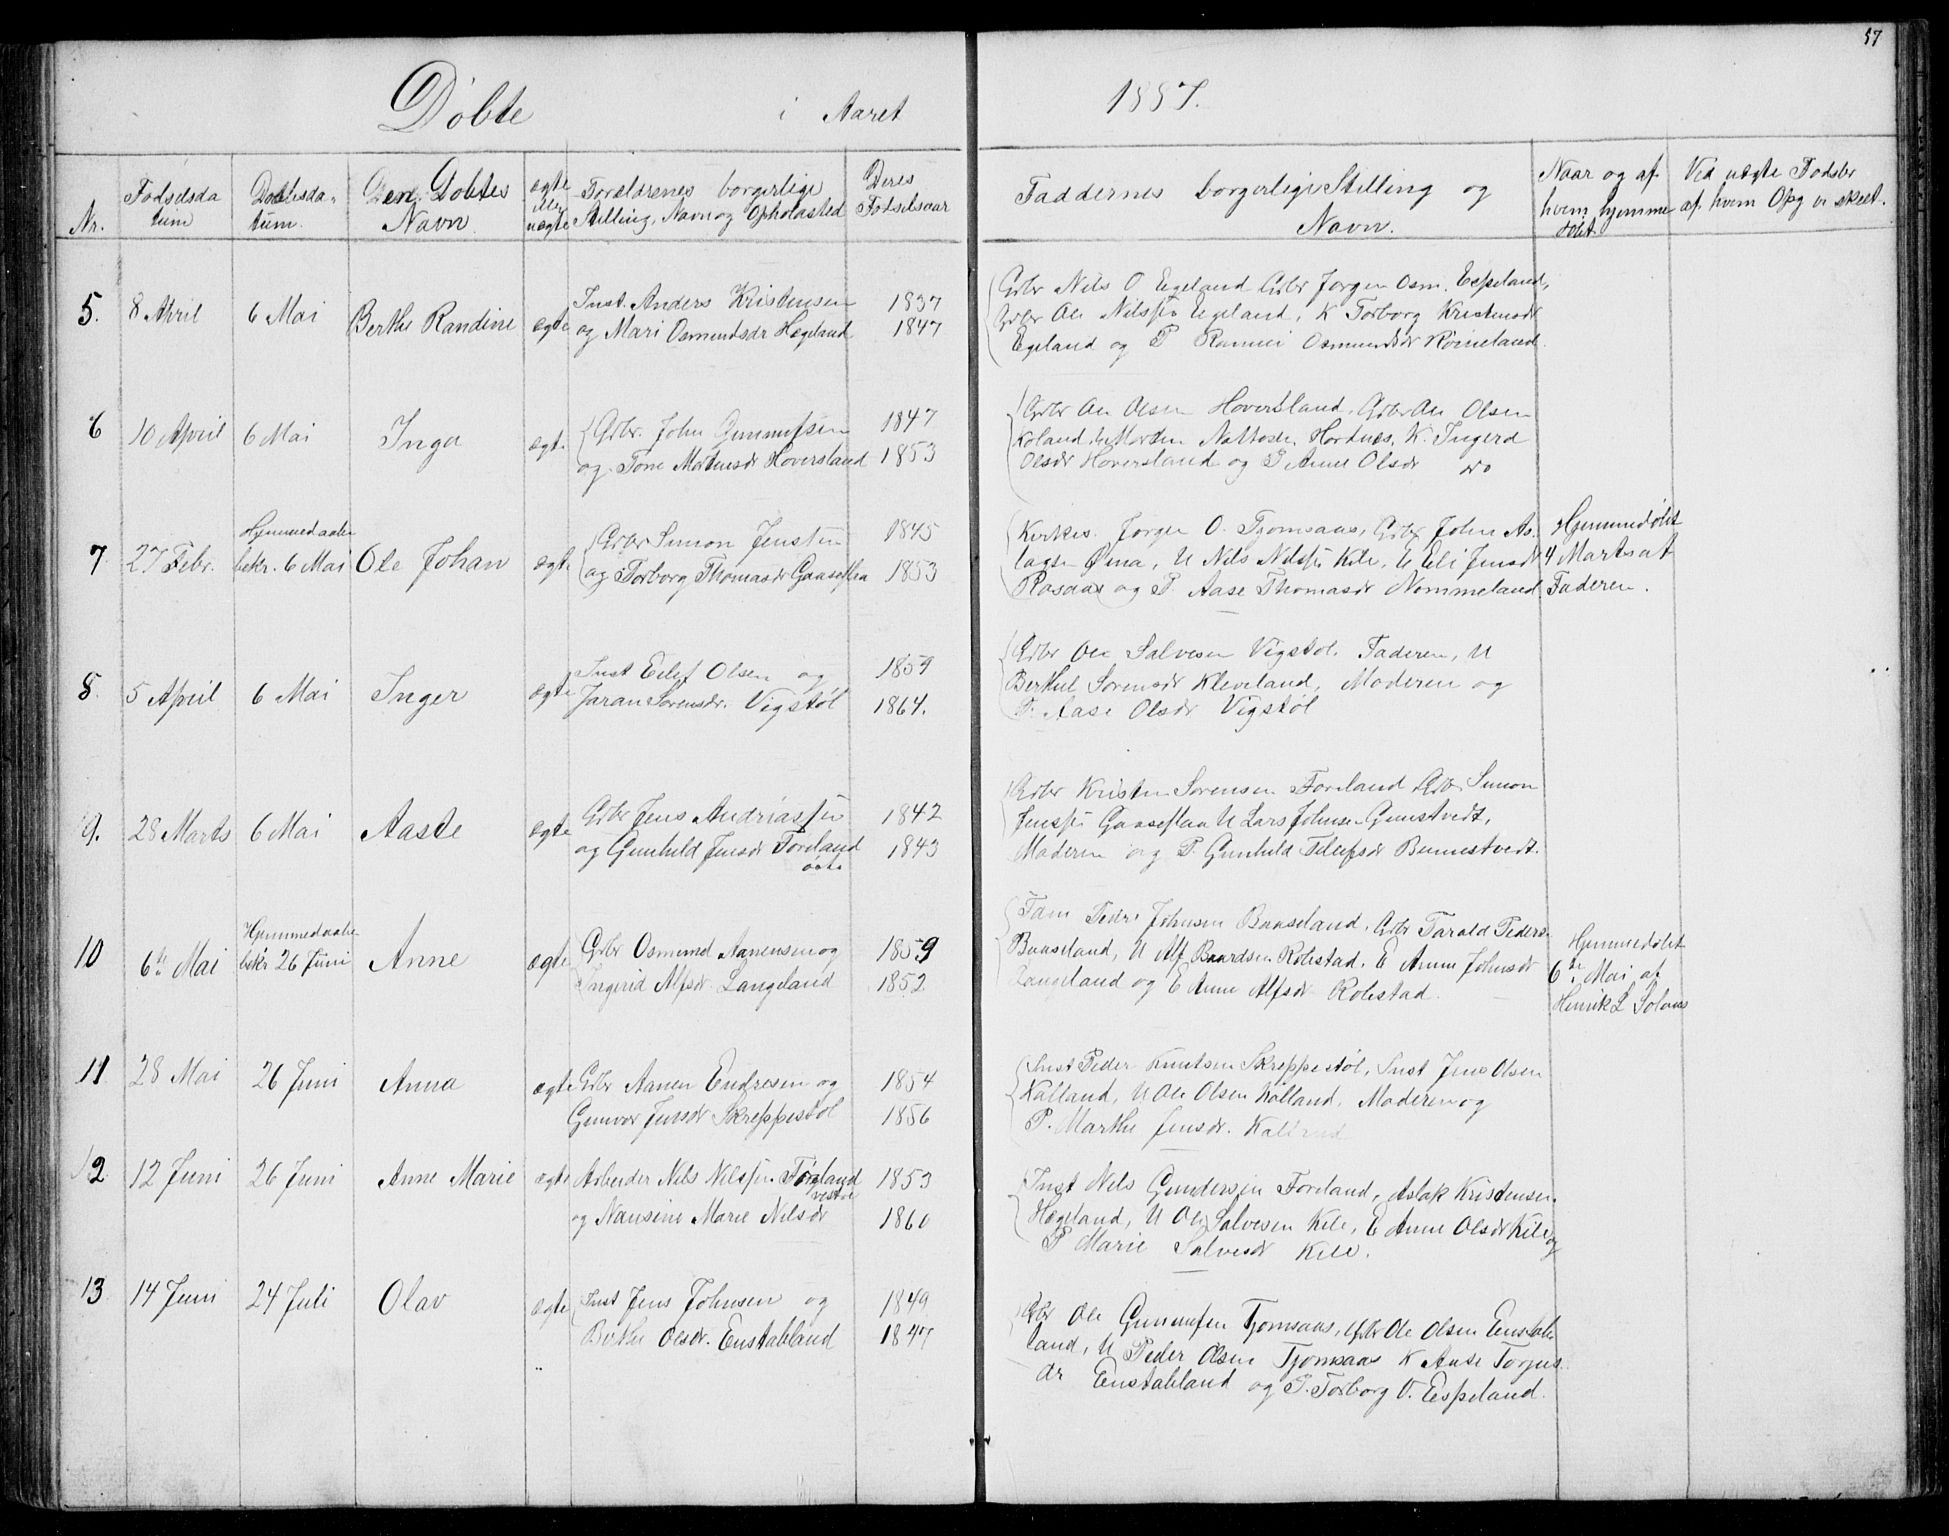 57
Døbte i Aaret 1887.
Nr.
Fødselsda
tum
Daabsda-
tum.
Den Døbtes
Navn.
ægte
eller
uægte
Forældrenes borgerlige
Stilling, Navn og Opholdsted
Deres
Fødselsaar
Faddernes borgerlige Stilling og
Navn.
Naar og af
hvem hjemme
døbt.
Ved uægte Fødsler
af hvem Opg er skeet.
5. 8 April 6 Mai Berthe Randine ægte
Inst. Anders Kristensen 1837
og Mari Osmundsdr Hægeland 1847
Grbr Nils O Egeland Grbr Jørgen Osm. Espeland,
Grbr Ole Nilssen Egeland, K Torborg Kristensdr
Egeland og P Osmundsdr Røineland.
6 10 April 6 Mai Inga ægte
Grbr. John Gunnufsen 1847
og Tone Mortensdr Hoversland 1853
Grbr Ole Olsen Hoversland, Grbr Ole Olsen
Koland, U Morten Hordnes, K. Ingerd
Olsdr Hoversland og P Anne Olsdr do
7 27 Febr. Hjemmedaaben
bekr. 6 Mai Ole Johan ægte
Grbr Simon Jensen 1845
og Torborg Thomasdr Gaaseflaa 1853
Kirkes. Jørgen O. Tjomsaas, Grbr John As-
lagsen Øina, U Nils Nilssen Kile, U Eli Jensdr
Rosaas og P. Aase Thomasdr Nommeland
Hjemmedøbt
4 Marts af
Faderen.
8. 5 April 6 Mai Inger ægte
Inst Eilef Olsen og 1859
Jaran Sørensdr. Vigstøl 1864.
Grbr Ole Salvesen Vigstøl. Faderen, U
Berthel Sørensdr Kleveland, Moderen og
P. Aase Olsdr Vigstøl
9. 28 Marts 6 Mai Aaste ægte
Grbr Jens Andriassen 1842
og Gunhild Jensdr Føreland 1843
østre
Grbr Kristen Sørensen Føreland Grbr Simon
Jenssen Gaaseflaa U Lars Johnsen Gunstvedt,
Moderen og P. Gunhild Telefsdr Bunnestvedt.
10 6te Mai Hjemmedaaben
bekr 26 Juni Anne ægte
Grbr Osmund Aanensen og 1859
Ingerid Alfsdr. Langeland 1852
Peder Johnsen Baaseland, Grbr Tarald Peders.
Baaseland, U Alf Baardsen Robstad, E Anne Johnsdr
Langeland og E Anne Alfsdr Robstad.
Hjemmedøbt
6te Mai af
Henrik L Solaas
11 28 Mai 26 Juni Anna ægte
Grbr Aanen Endresen og 1854
Gunvor Jensdr Skreppestøl 1856
Inst Peder Knutsen Skreppestøl, Inst Jens Olsen
Kalland, U Ole Olsen Kalland, Moderen og
P. Marthe Jensdr. Kalland
12 12 Juni 26 Juni Anne Marie ægte
Arbeider Nils Nilssen Føreland 1853
vestre
og Nansine Marie Nilsdr 1860
Inst Nils Gundersen Føreland, Aslak Kristensen
Hægeland, U Ole Salvesen Kile, E Anne Olsdr Kile og
P Marie Salvesdr Kile.
13 14 Juni 24 Juli Olav ægte
Inst Jens Johnsen og 1849
Berthe Olsdr. Enstabland 1847
Grbr Ole Gunnufsen Tjomsaas, Grbr Ole Olsen Enstab-
land, U Peder Olsen Tjomsaas K Aase Torjus-
dr Enstabland og P. Torborg O. Espeland.